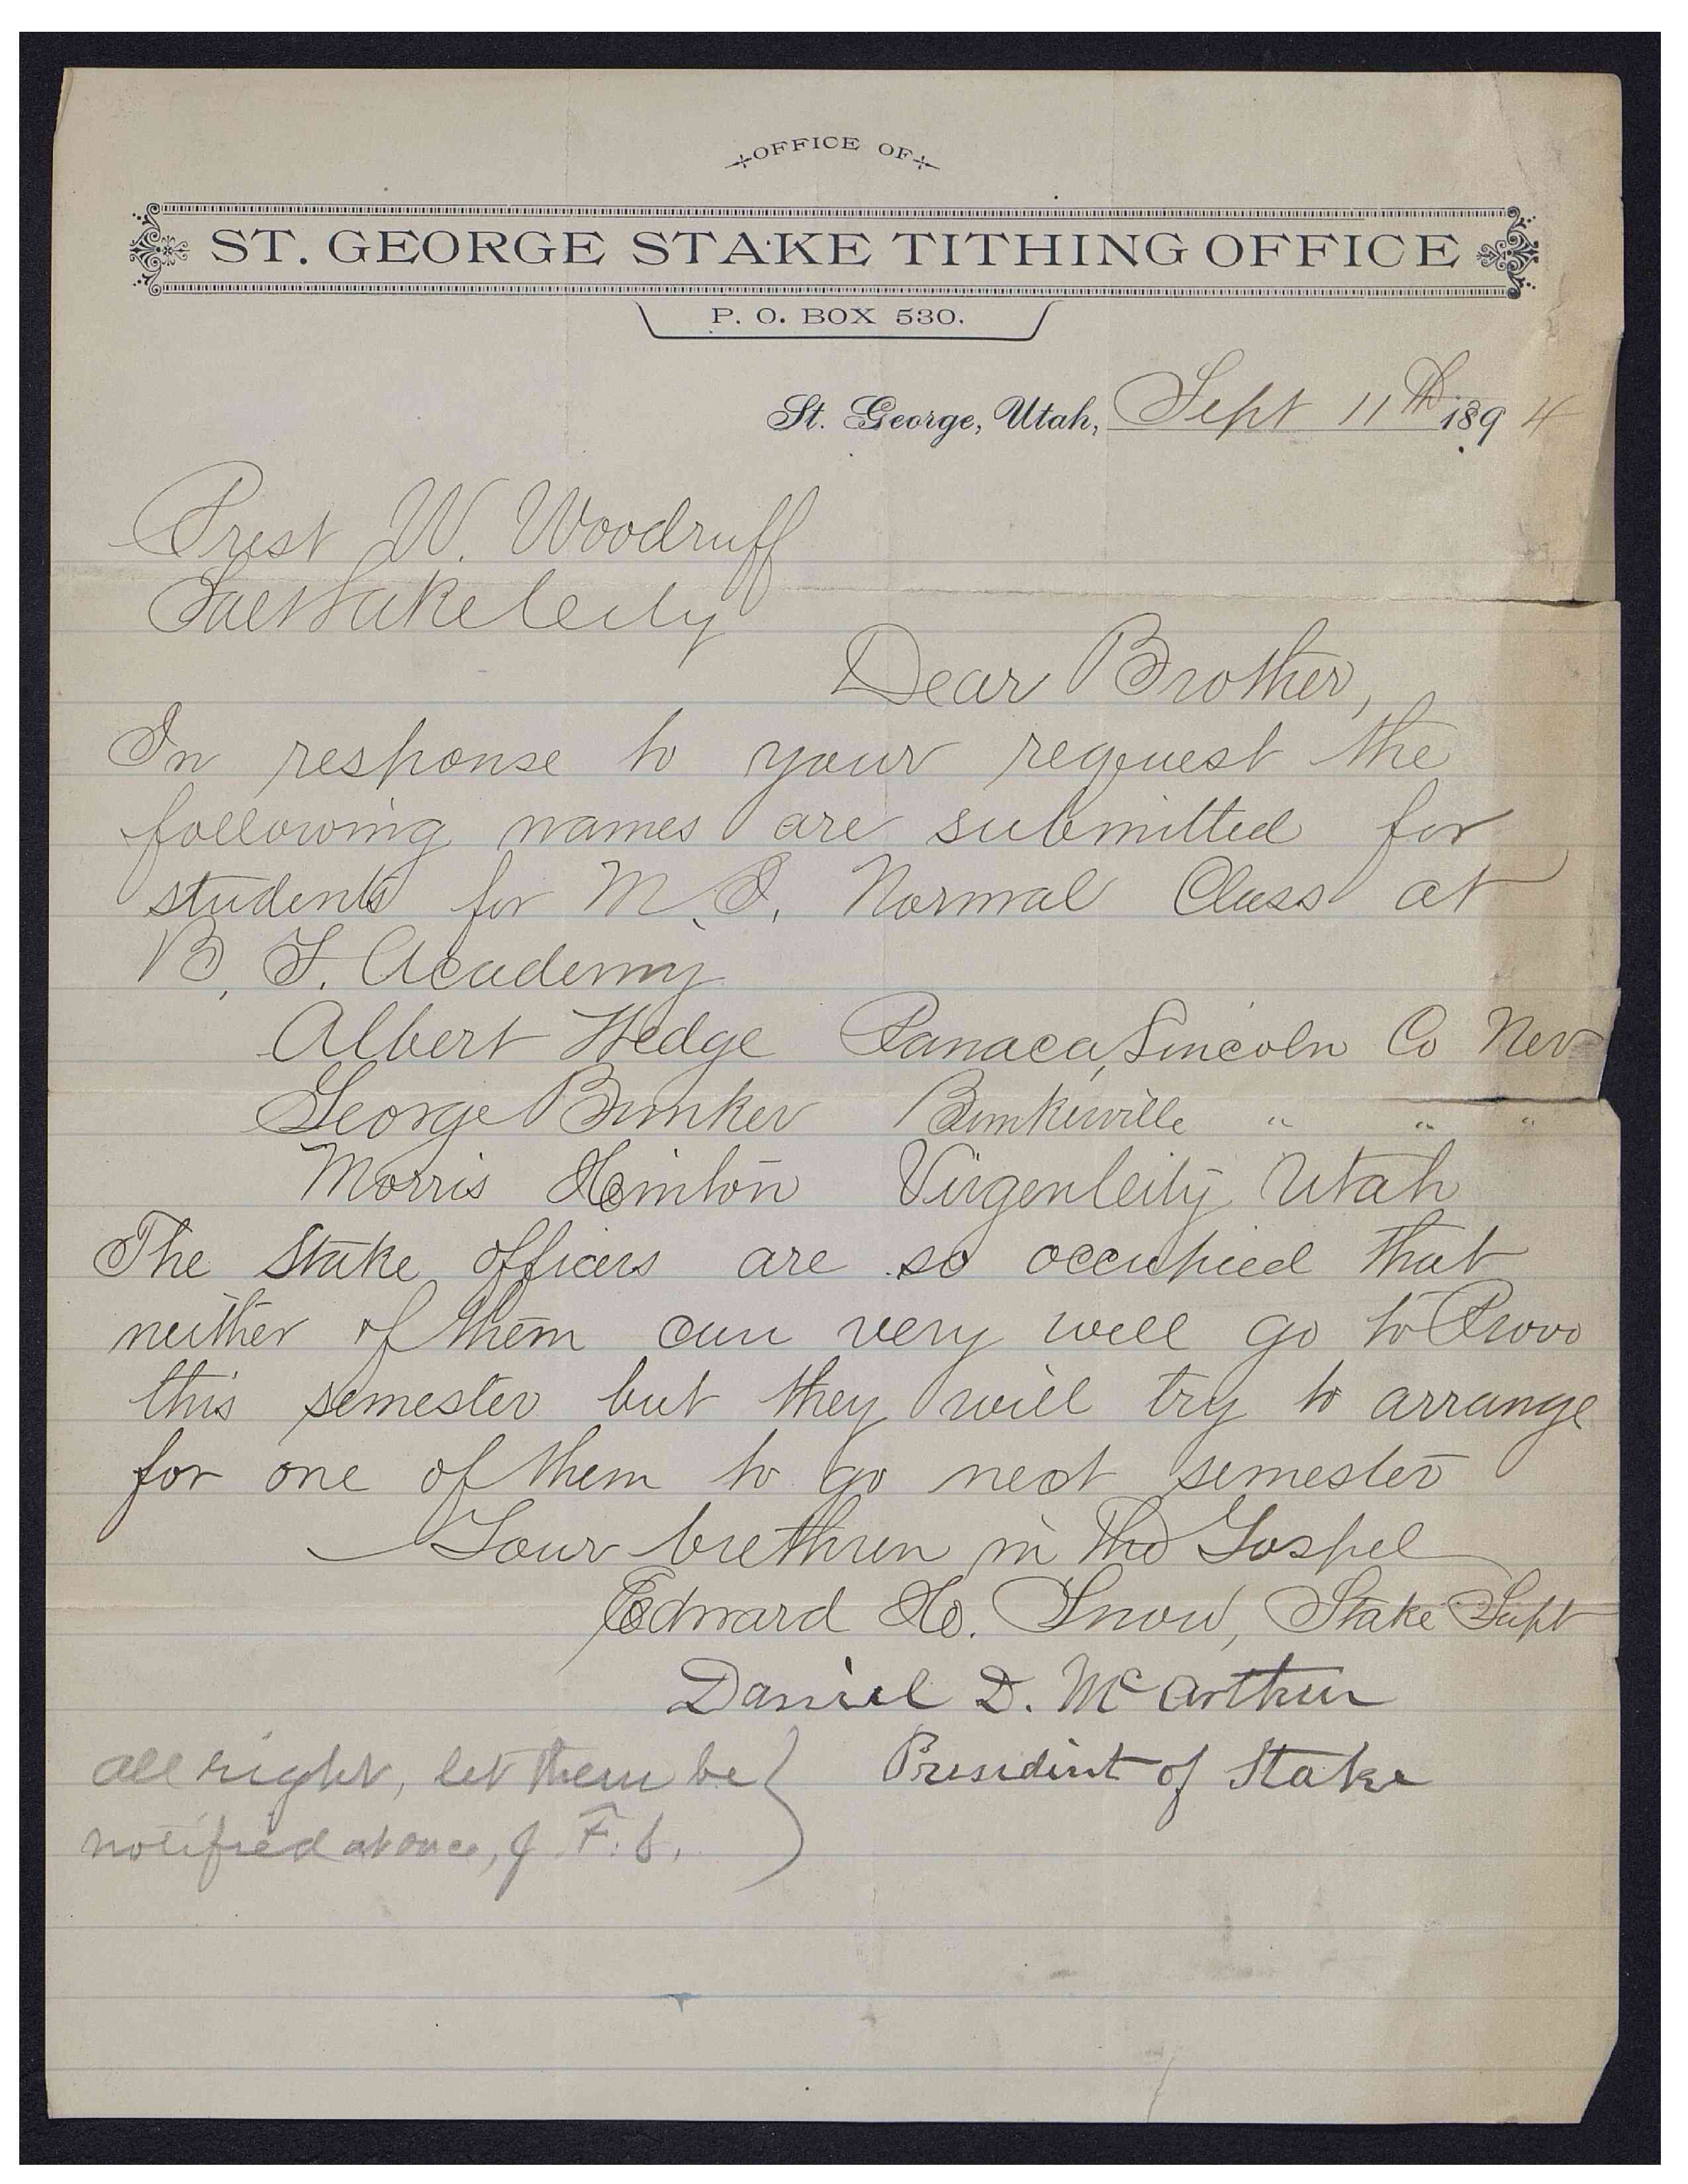 OFFICE OF
ST. GEORGE STAKE TITHING OFFICE
P. O. BOX 530.
St. George, Utah, Sept 11th 1894
Prest W. Woodruff
Salt Lake City
Dear Brother,
In response to your request the
following names are submitted for
students for M. I. Normal Class at
B. Y. Academy
Albert Wedge Panaca, Lincoln Co Nev
George Bunker Bunkerville " " "
Morris Hinton Virgen City Utah
The Stake officers are so occupied that
neither of them can very well go to Provo
this semester but they will try to arrange
for one of them to go next semester
Your brethren in the Gospel
Edward H. Snow, Stake Supt
Daniel D. McArthur
President of Stake
all right, let them be
notified at once, J. F. S.